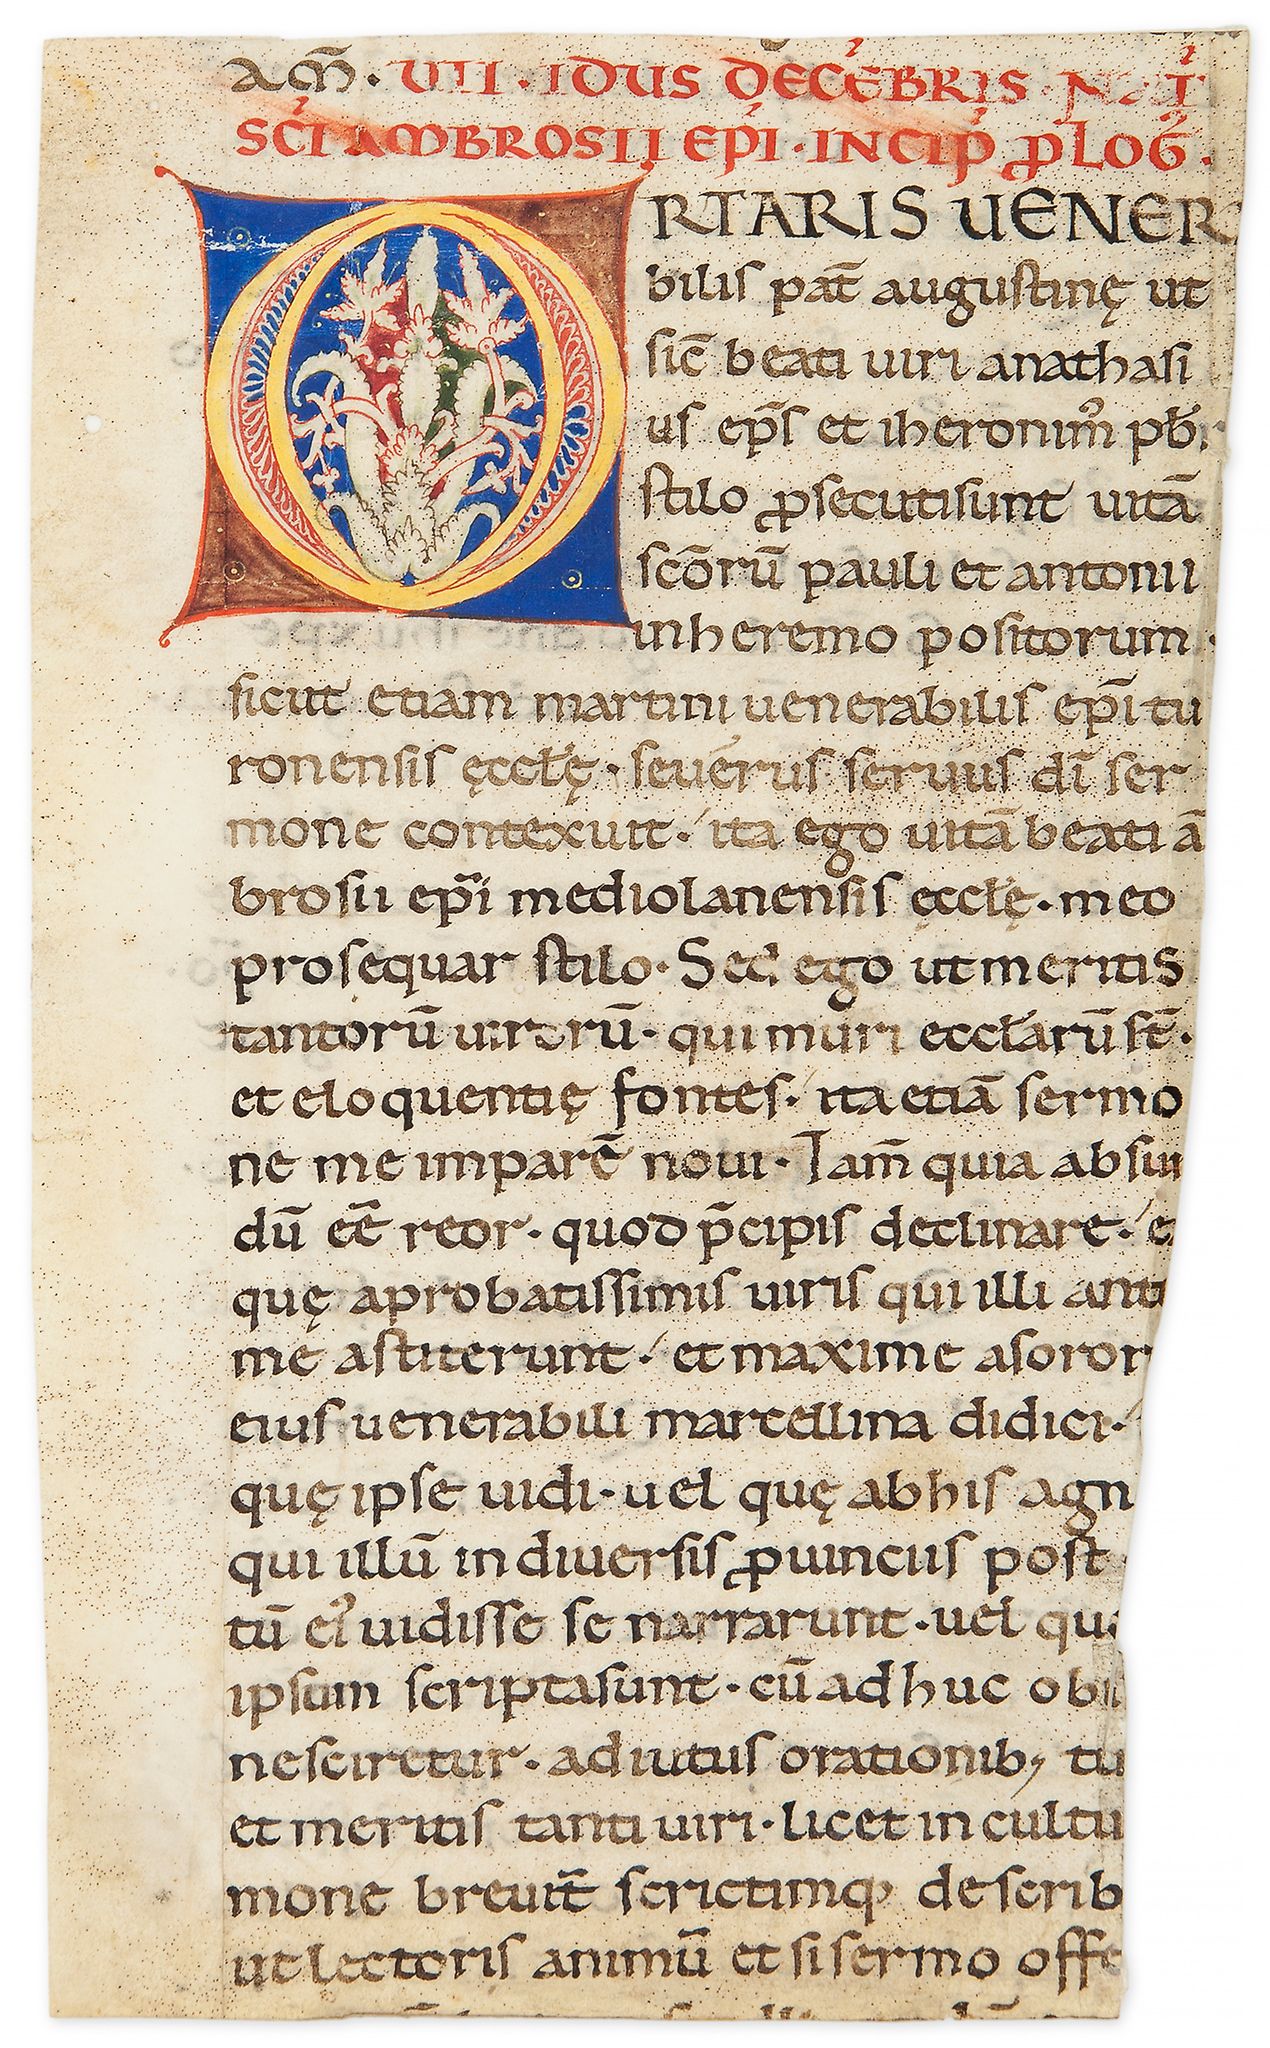 am̄. VII. IDUS DECĒBRIS. NAT̄
SC̄I AMBROSII EP̄I. INCIP̄ ꝒLOḠ.
ORTARIS UENERA
bilis pat̄ augustinę ut
sic̄ beati uiri anathasi
us ep̄s et iheronimꝰ pb̄r
stilo ꝓsecuti sunt uitā
sc̄orū pauli et antonii
in heremo positorum.
sicut etiam martini uenerabilis ep̄i tu
ronensis ęccl̄ę. seuerus seruus dī ser
mone contexuit. ita ego uitā beati ā
brosii ep̄i mediolanensis ęccl̄ę. meo
prosequar stilo. Sed ego ut meritis
tantorū uirorū. qui muri eccl̄arū st̄.
et eloquentię fontes. ita etiā sermo
ne me imparē noui. Iam̄ quia absur
dū eē̄ reor. quod p̄cipis declinare. e
quę a probatissimis uiris qui illi ante
me astiterunt. et maxime a soror
eius uenerabili marcellina didici.
quę ipse uidi. uel quę ab his agn
qui illū in diuersis ꝓuinciis post
tū eiꝰ uidisse se narrarunt. uel quę
ipsum scripta sunt. cū adhuc obi
nesciretur. adiutus orationib; tu
et meritis tanti uiri. licet in cultu
mone breuit̄ scrictimq; describ
ut lectoris animū et si sermo offe